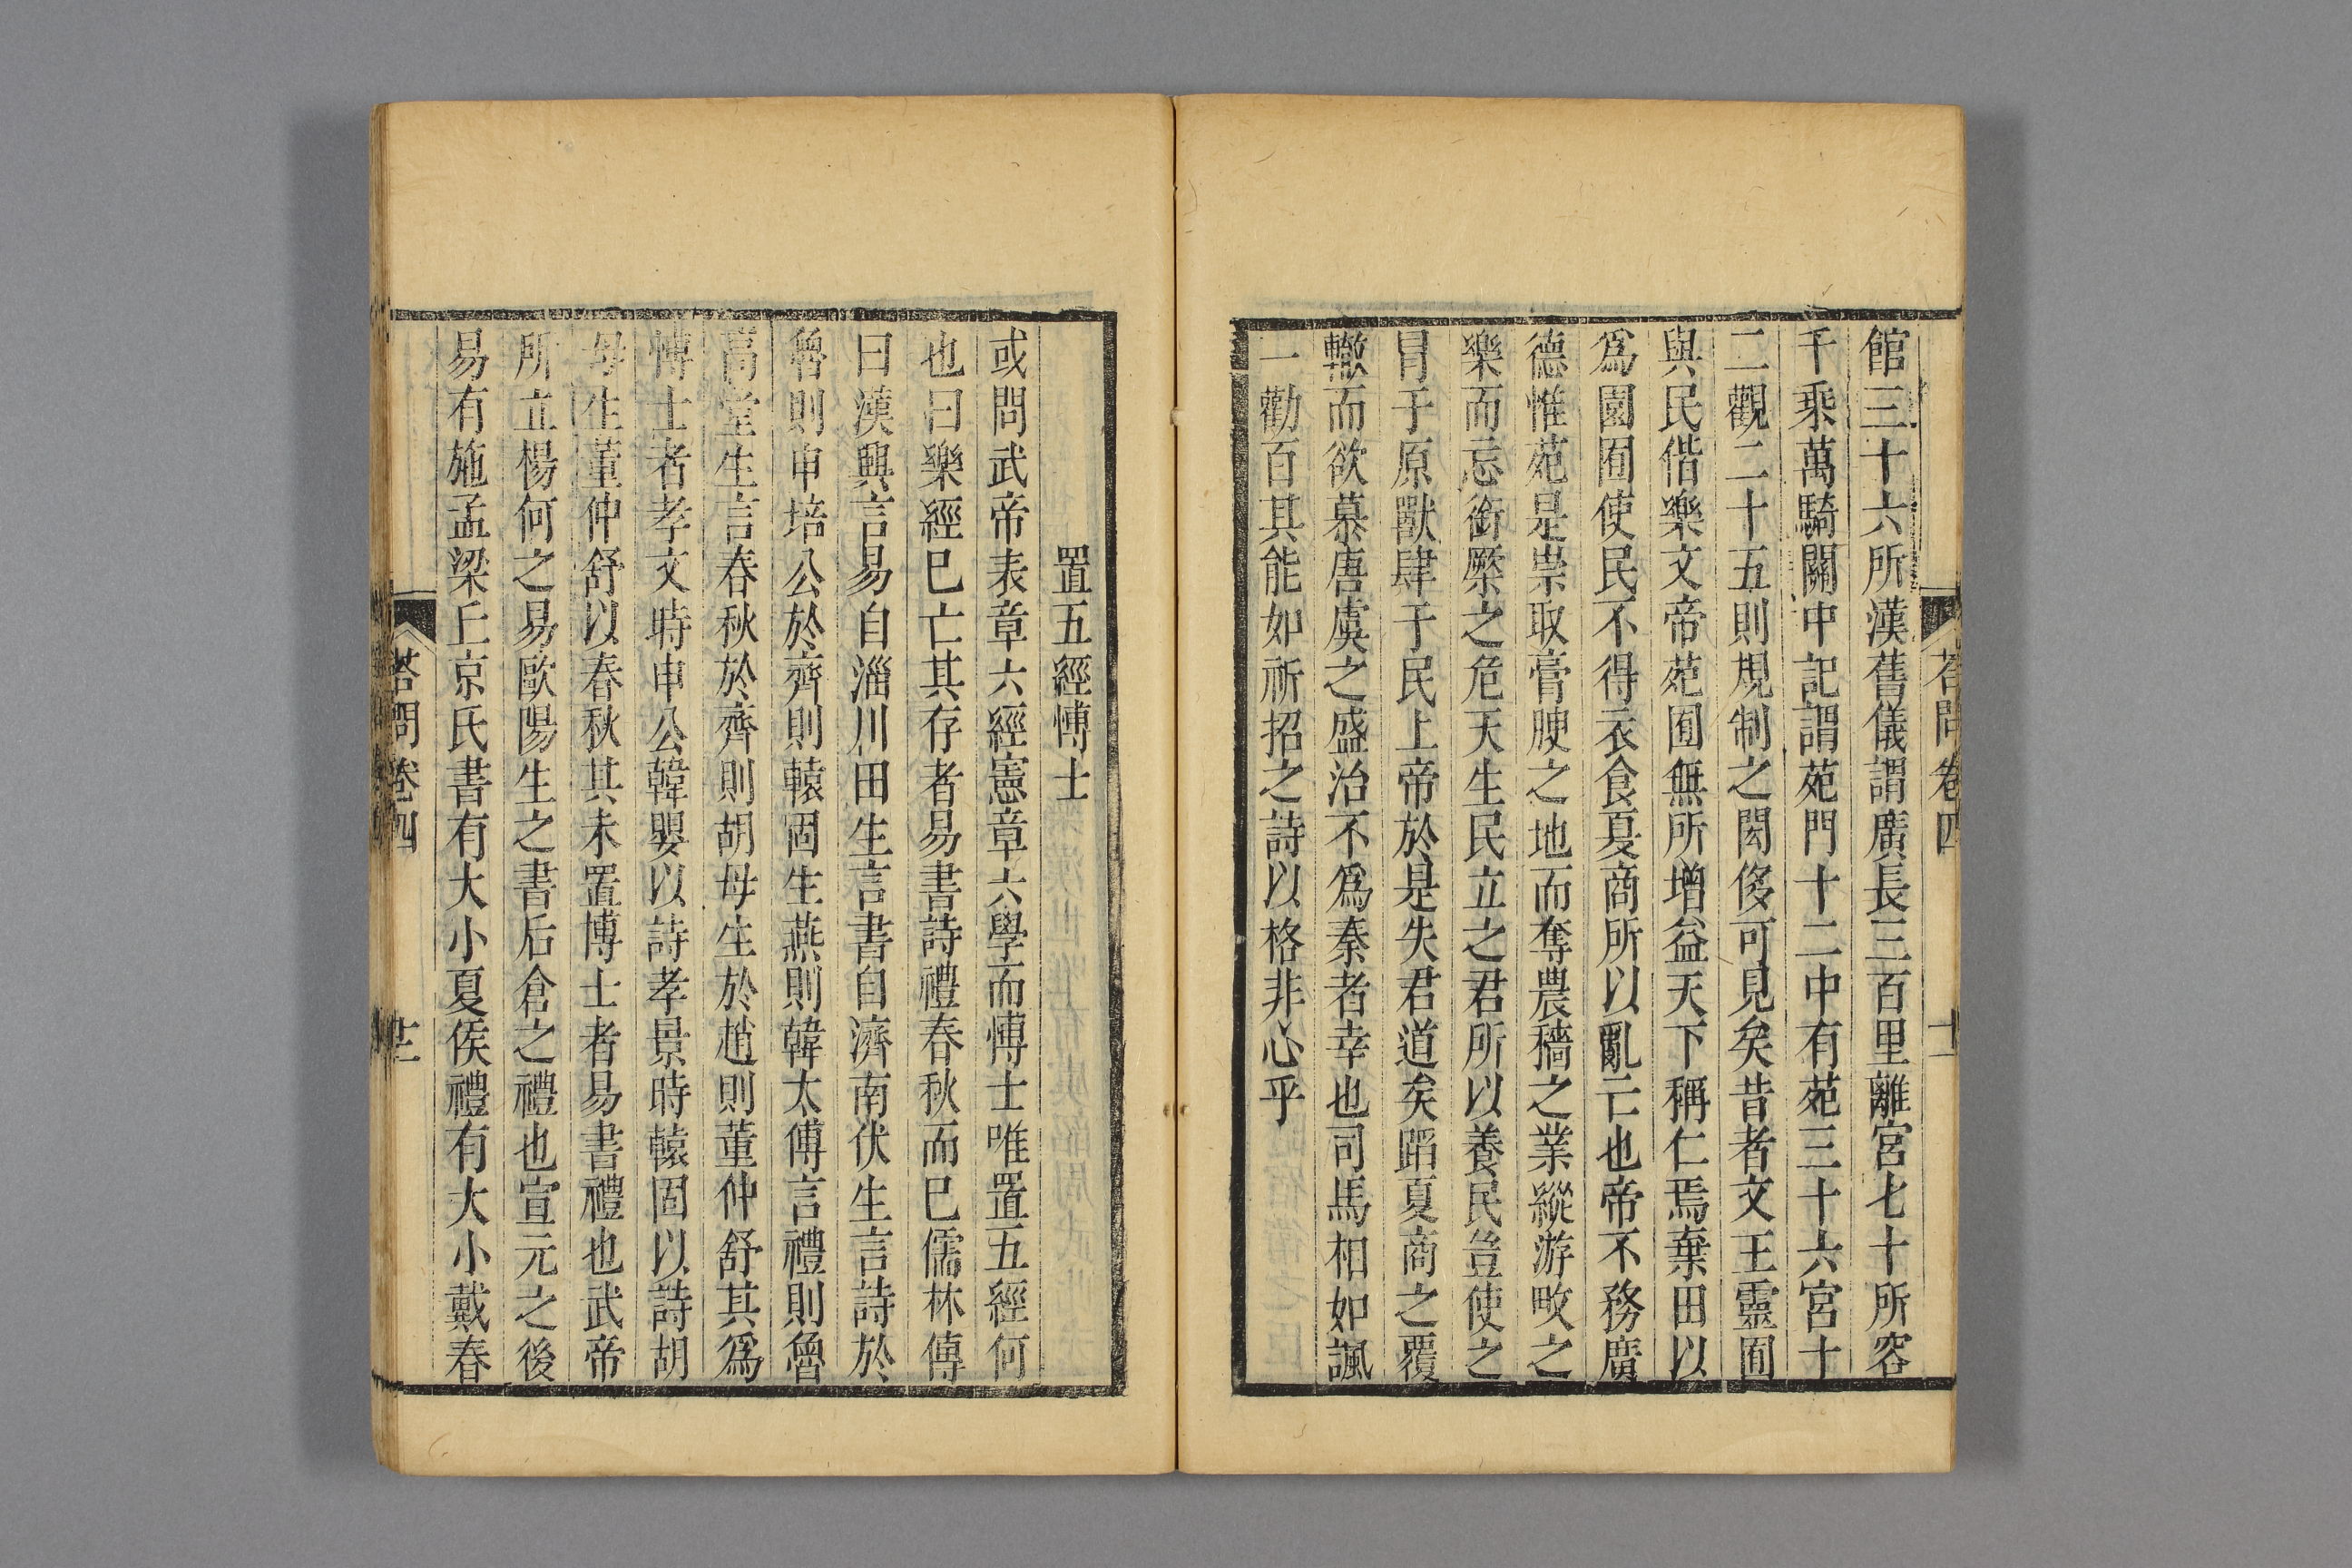 荅問卷四
十二
館三十六所漢舊儀謂廣長三百里離宮七十所容
千乘萬騎關中記謂苑門十二中有苑三十六宮十
二觀二十五則規制之閎侈可見矣昔者文王靈囿
與民偕樂文帝苑囿無所增益天下稱仁焉棄田以
爲園囿使民不得衣食夏商所以亂亡也帝不務廣
德惟苑是崇取膏腴之地而奪農穡之業縱游畋之
樂而忘銜橜之危天生民立之君所以養民豈使之
冒于原獸肆于民上帝於是失君道矣蹈夏商之覆
轍而欲慕唐虞之盛治不爲秦者幸也司馬相如諷
一勸百其能如祈招之詩以格非心乎
置五經博士
或問武帝表章六經憲章六學而博士唯置五經何
也曰樂經巳亡其存者易書詩禮春秋而巳儒林傳
曰漢興言易自淄川田生言書自濟南伏生言詩於
魯則申培公於齊則轅固生燕則韓太傅言禮則魯
高堂生言春秋於齊則胡母生於趙則董仲舒其爲
博士者孝文時申公韓嬰以詩孝景時轅固以詩胡
母生董仲舒以春秋其未置博士者易書禮也武帝
所立楊何之易歐陽生之書后倉之禮也宣元之後
易有施孟梁丘京氏書有大小夏侯禮有大小戴春
荅問卷四